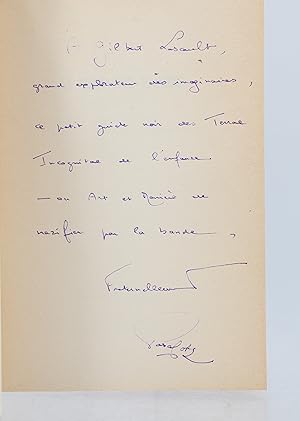 A Gilbert Lascault,
grand explorateur des imaginaires,
ce petit guide noir des Terrae
Incognitae de l'enfance
— ou Art et Manière de
nazifier par la bande,
Fraternellement